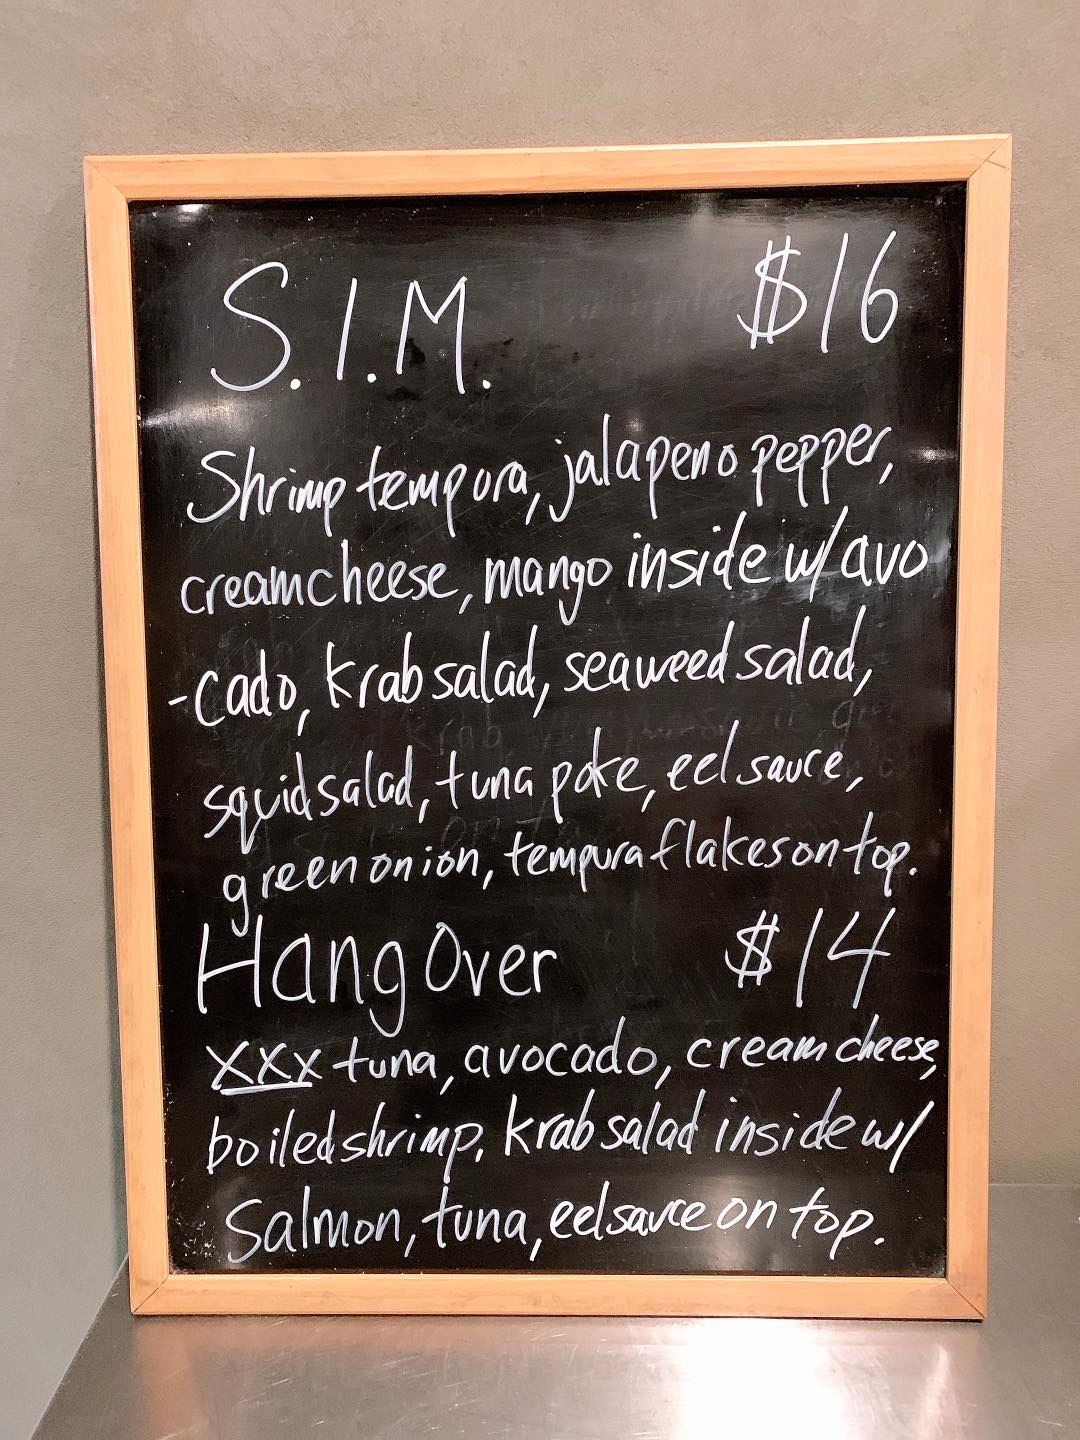 S.I.M. $16
Shrimp tempura, jalapeno pepper,
creamcheese, mango inside w/ avo
-cado, krab salad, seaweed salad,
squid salad, tuna poke, eel sauce,
green onion, tempura flakes on top.
HangOver $14
XXX tuna, avocado, cream cheese,
boiled shrimp. krab salad inside w/
Salmon, tuna, eel sauce on top.